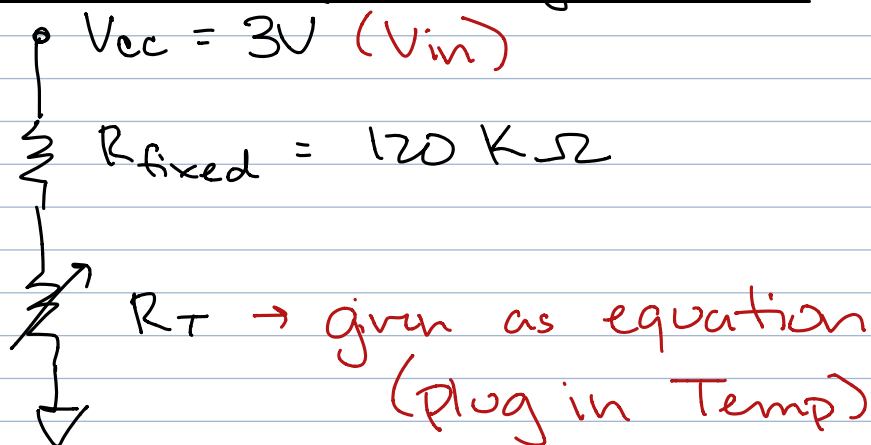 Vcc = 3V (Vin)
Rfixed = 120 KΩ
RT → given as equation
(plug in Temp)